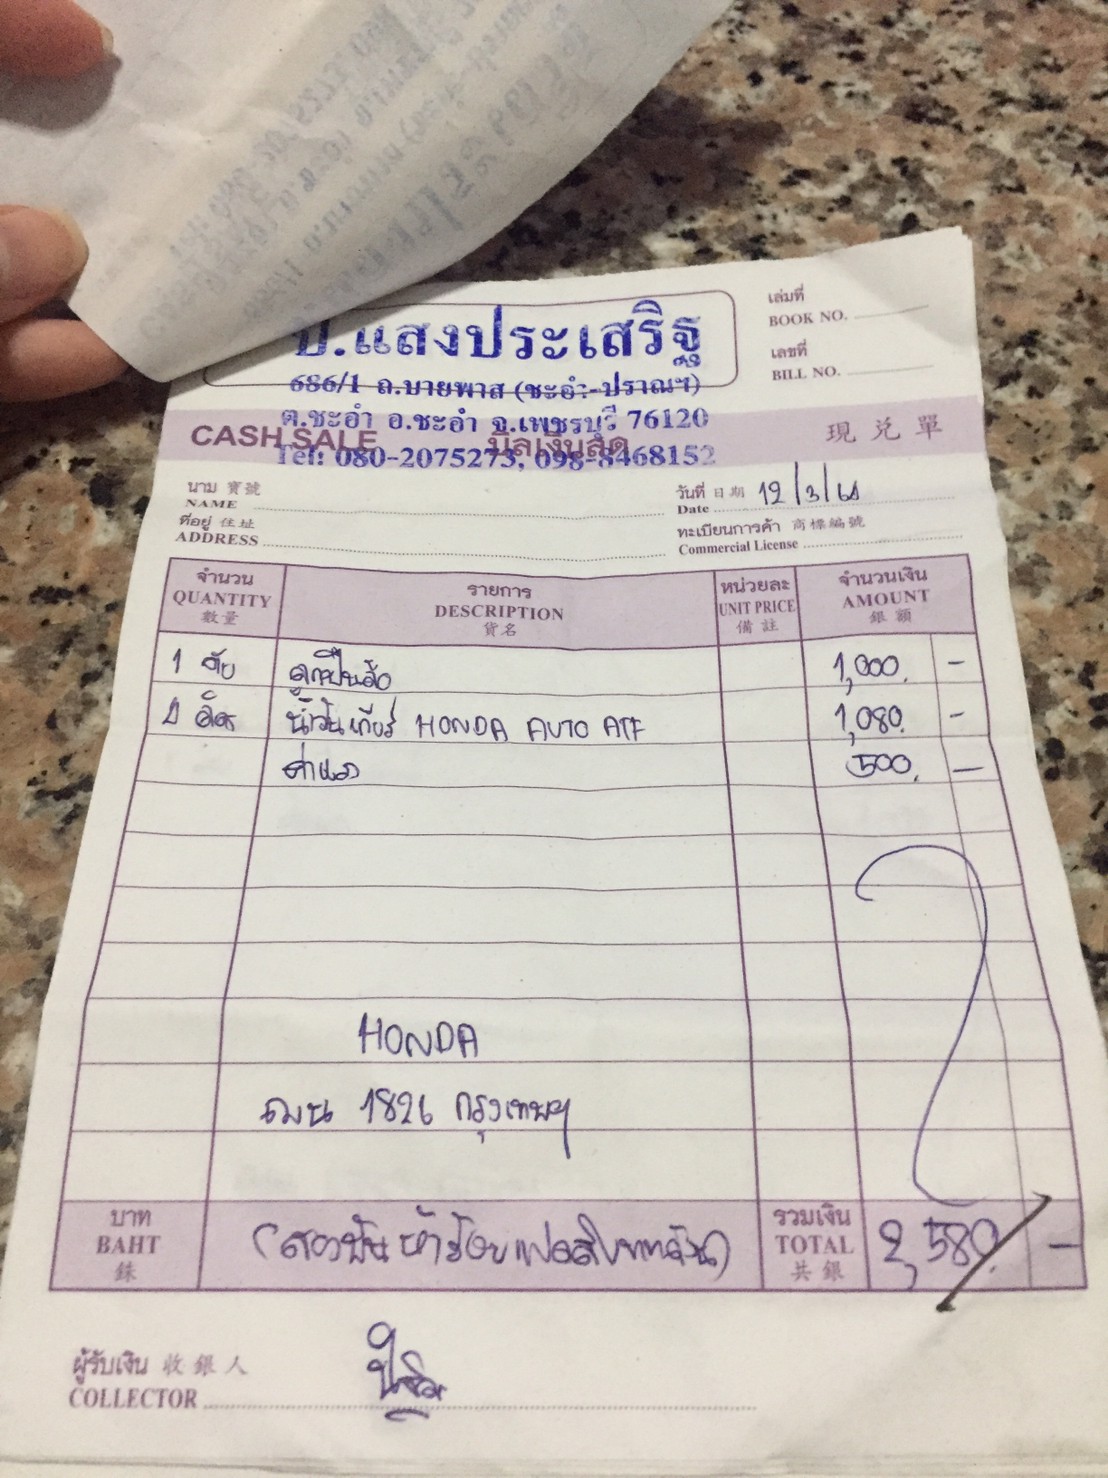 เล่มที่
BOOK NO.
เลขที่
BILL NO.
ป.แสงประเสริฐ
686/1 ถ.บายพาส (ชะอำ-ปราณฯ)
ต.ชะอำ อ.ชะอำ จ.เพชรบุรี 76120
Tel: 080-2075273, 098-8468152
CASH SALE บิลเงินสด 現兌單
นาม 寶號
NAME
วันที่ 日期 12/3/61
Date
ที่อยู่ 住址
ADDRESS
ทะเบียนการค้า 商標編號
Commercial License
จำนวน รายการ หน่วยละ จำนวนเงิน
QUANTITY DESCRIPTION UNIT PRICE AMOUNT
數量 貨名 備註 銀額
1 ลูกปืนล้อ 1,000. -
น้ำมันเกียร์ HONDA AUTO ATF 1,080. -
ค่าแรง 500. -
HONDA
ฌมน 1826 กรุงเทพฯ
บาท
BAHT
銖
(สองพันห้าร้อยแปดสิบบาทถ้วน)
รวมเงิน
TOTAL
共銀
2,580. -
ผู้รับเงิน 收銀人
COLLECTOR